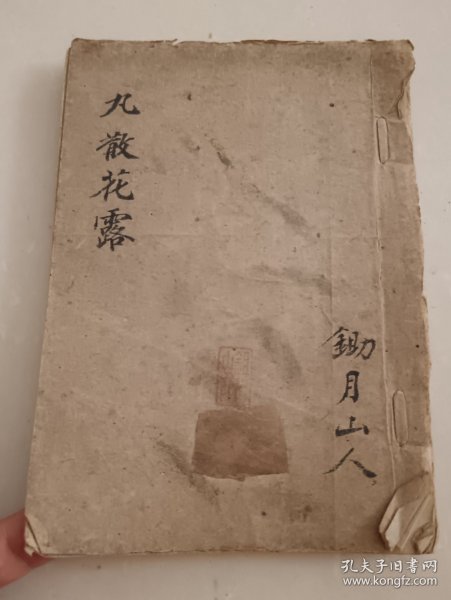 丸散花露
鋤月山人
孔夫子旧书网
www.kongfz.com